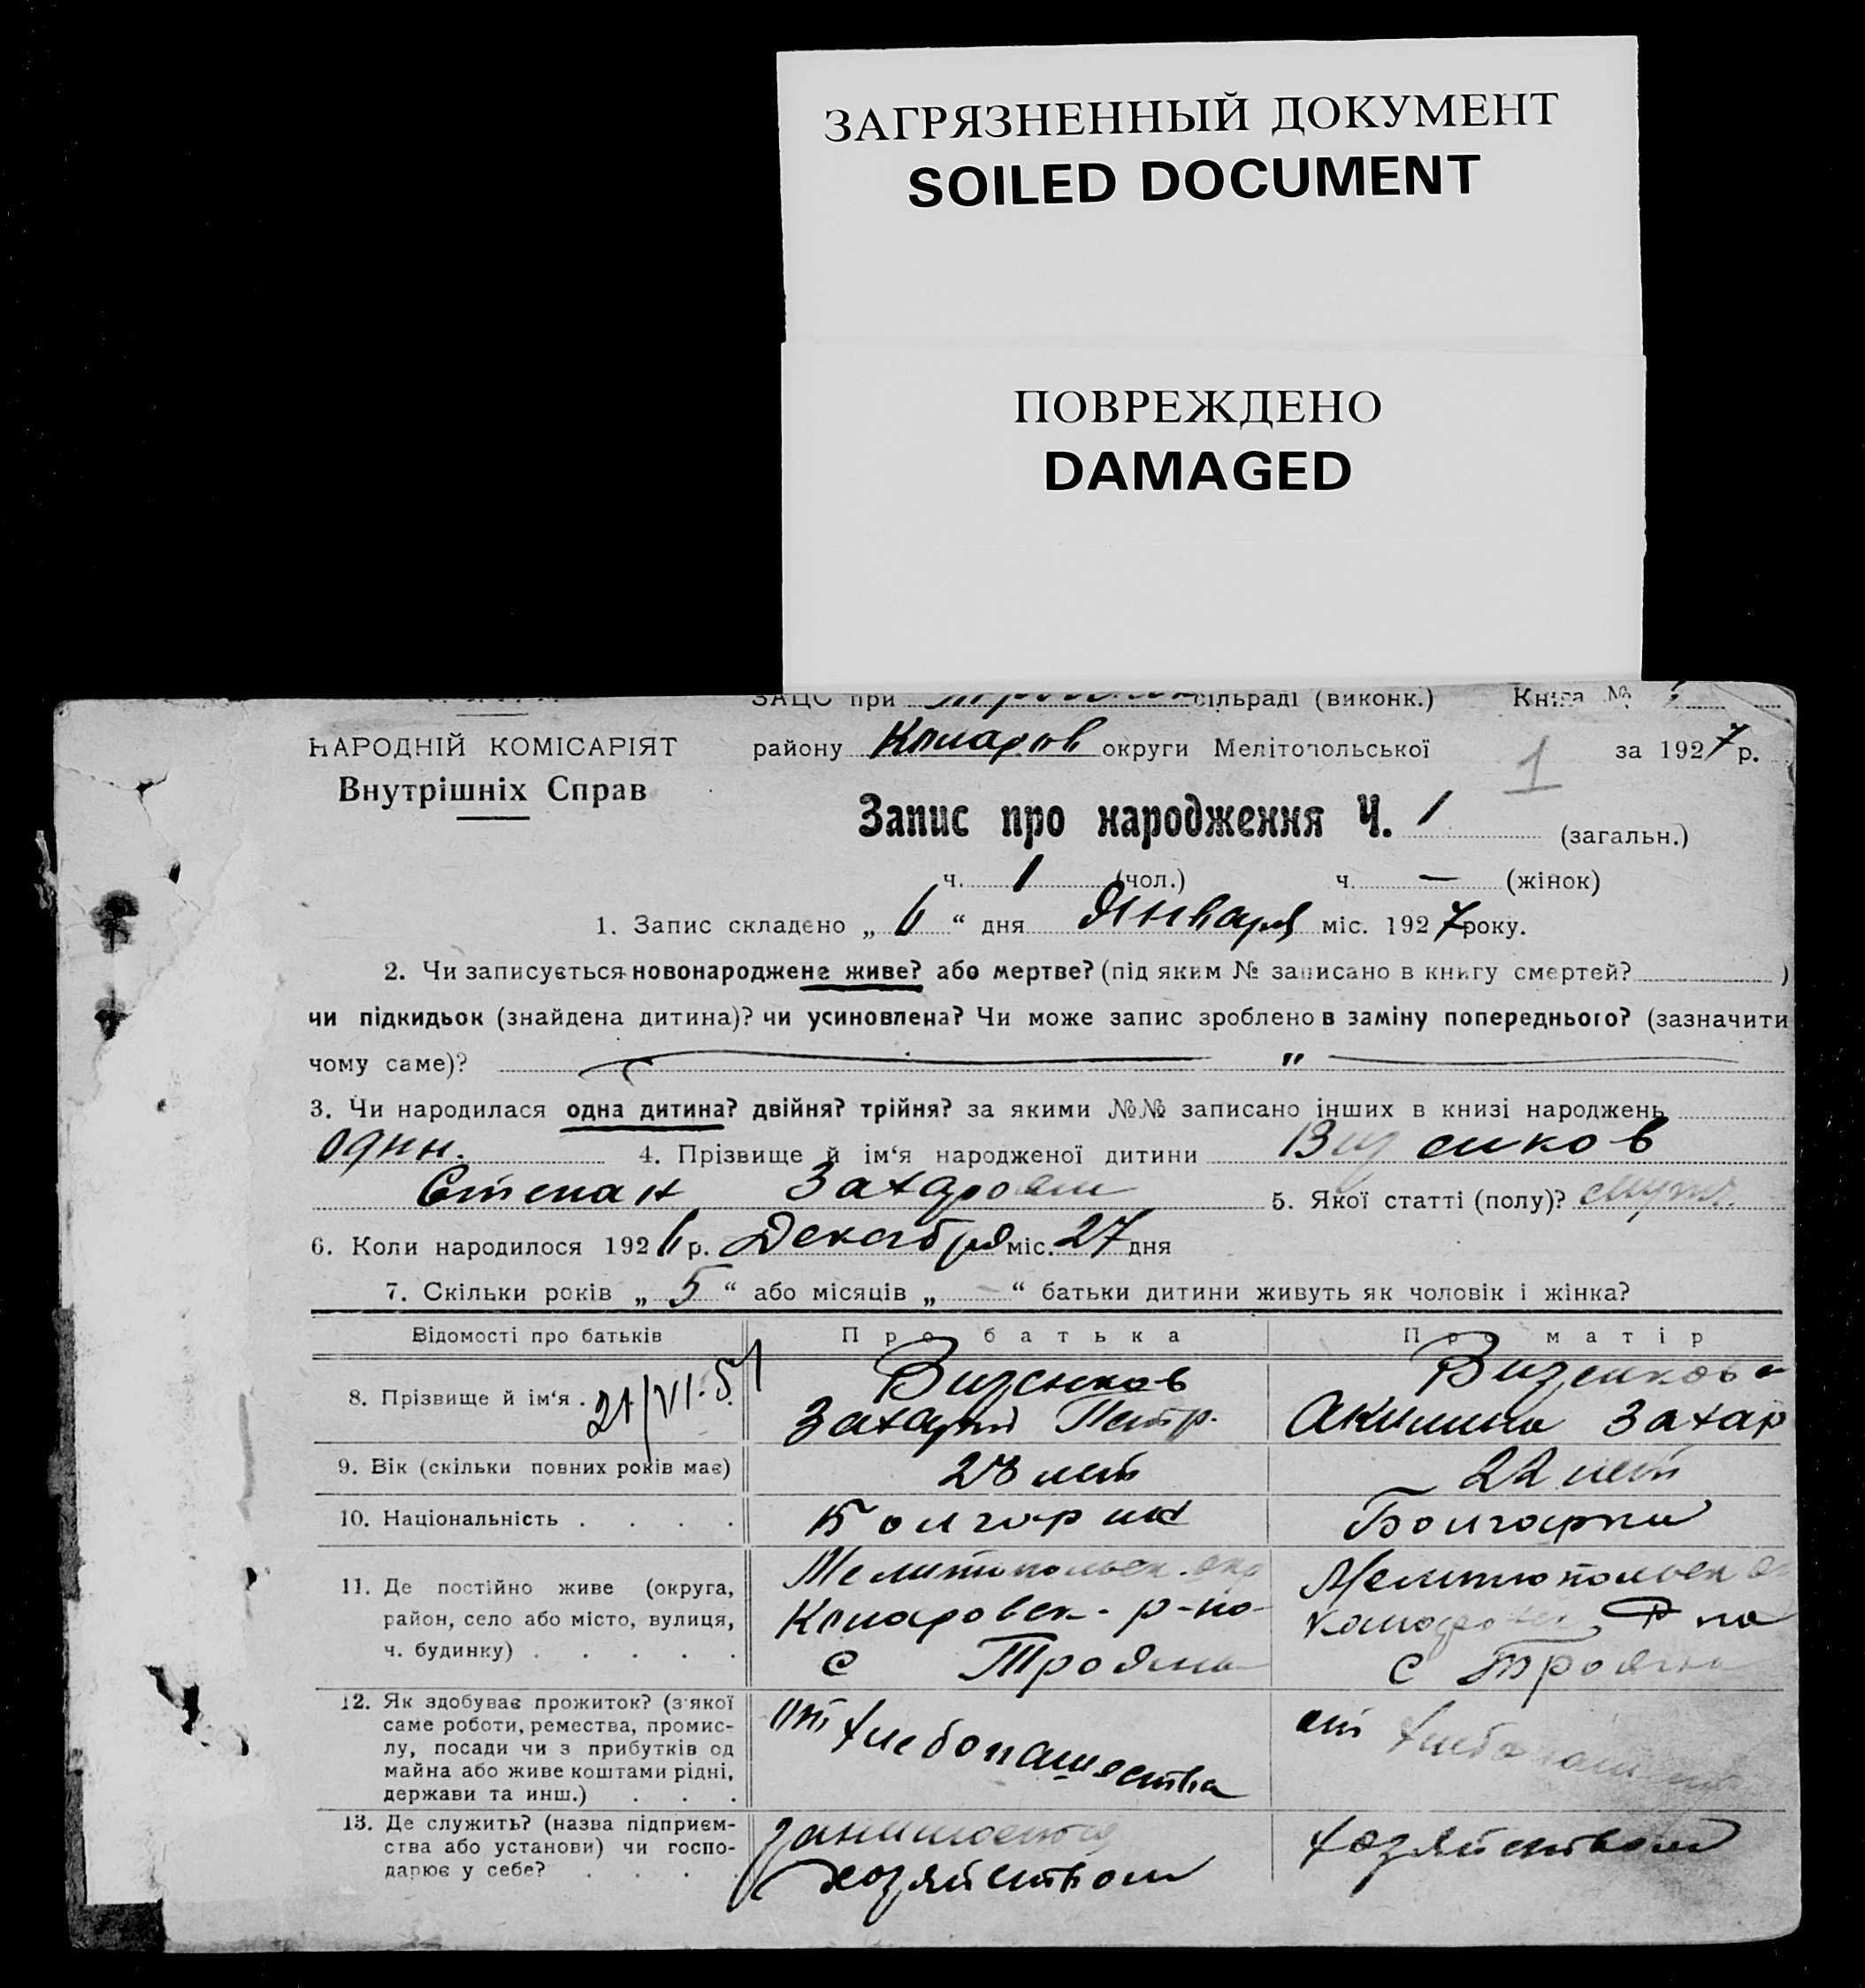 ЗАГРЯЗНЕННЫЙ ДОКУМЕНТ
SOILED DOCUMENT
ПОВРЕЖДЕНО
DAMAGED
ЗАЦС при сільраді (виконк.) Книга №
НАРОДНІЙ КОМІСАРІЯТ
району округи Мелітопольської за 1927 р.
1
Внутрішніх Справ
Запис про народження Ч. 1 (загальн.)
ч. 1 (чол.) ч. — (жінок)
1. Запис складено „ 6 “ дня Января міс. 1927 року.
2. Чи записується новонароджене живе? або мертве? (під яким № записано в книгу смертей? )
чи підкидьок (знайдена дитина)? чи усиновлена? Чи може запис зроблено в заміну попереднього? (зазначити
чому саме)? — " —
3. Чи народилася одна дитина? двійня? трійня? за якими №№ записано інших в книзі народжень
один. 4. Прізвище й ім‘я народженої дитини Визенков
Степан 5. Якої статті (полу)?
6. Коли народилося 1926 р. Декабря міс. 27 дня
7. Скільки років „ 5 “ або місяців „ - “ батьки дитини живуть як чоловік і жінка?
Відомості про батьків Про батька Про матір
8. Прізвище й ім‘я . 21/VI-51 Визенков Визенкова
Захарий Петр. Акилина Захар
9. Вік (скільки повних років має) 28 лет 22 лет
10. Національність . . . . Болгарин Болгарка
11. Де постійно живе (округа, район, село або місто, вулиця, ч. будинку) . . . . .
Мелитопольск. окр Мелитопольск
р-на р-на
с Трояна с Трояна
12. Як здобуває прожиток? (з якої саме роботи, ремества, промислу, посади чи з прибутків од майна або живе коштами рідні, держави та инш.) . . .
от хлебопашества от
13. Де служить? (назва підприємства або установи) чи господарює у себе? . . . .
хозяйством хозяйством